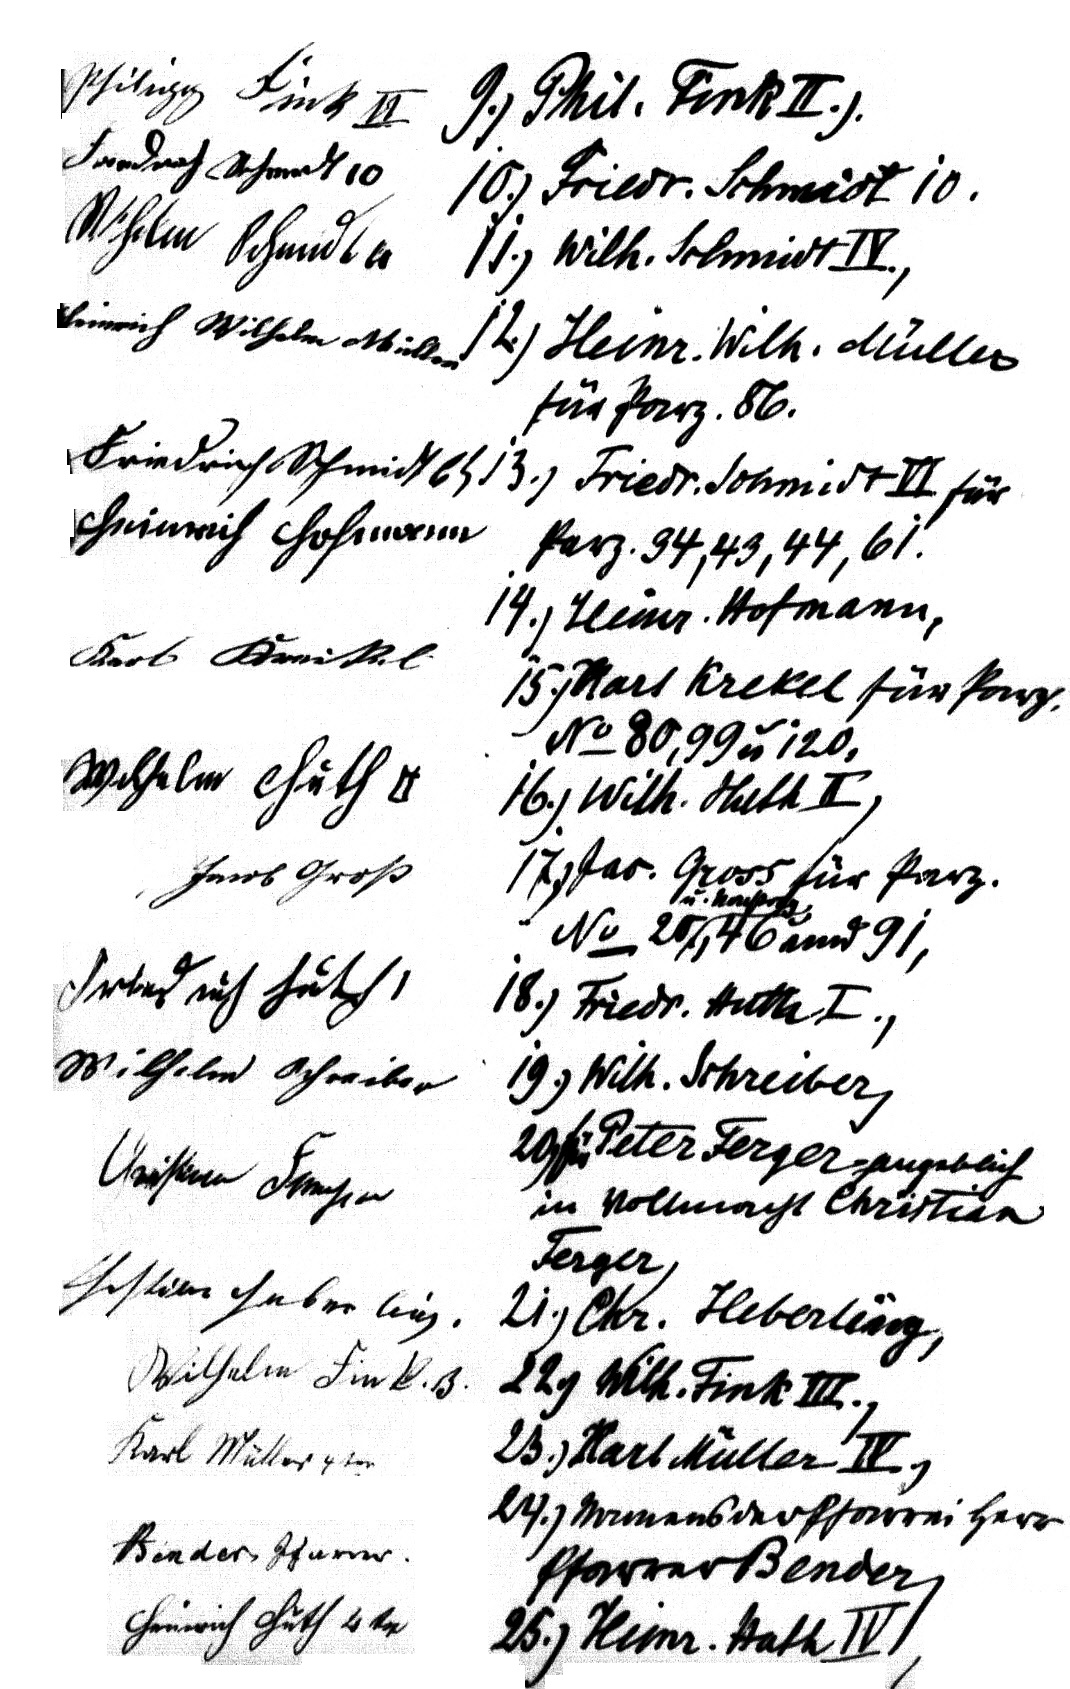 Philipp Fink II 9.) Phil. Fink II.).
Friedrich Schmidt 10 10.) Friedr. Schmidt 10.
Wilhelm Schmidt 4 11.) Wilh. Schmidt IV.,
Heinrich Wilhelm Müller 12.) Heinr. Wilh. Müller
für Parz. 86.
Friedrich Schmidt 6 13.) Friedr. Schmidt VI für
Heinrich Hofmann Parz. 34, 43, 44, 61.
14.) Heinr. Hofmann,
Karl Kreikel 15.) Karl Krekel für Parz.
No 80, 99 u 120.
Wilhelm Huth II 16.) Wilh. Huth II,
Jacob Groß 17.) Jac. Gross für Parz.
No 25, 46 und 91,
Friedrich Huth 1 18.) Friedr. Huth I.,
Wilhelm Schreiber 19.) Wilh. Schreiber,
Christian 20) für Peter Ferger - angeblich
in Vollmacht Christian
Ferger,
Christian Heberling. 21.) Chr. Heberling,
Wilhelm Fink. 3. 22.) Wilh. Fink III.,
Karl Müller 4ter 23.) Karl Müller IV.,
24.) Namens der Pfarrei Herr
Bender, Pfarrer. Pfarrer Bender,
Heinrich Huth 4ter 25.) Heinr. Huth IV,